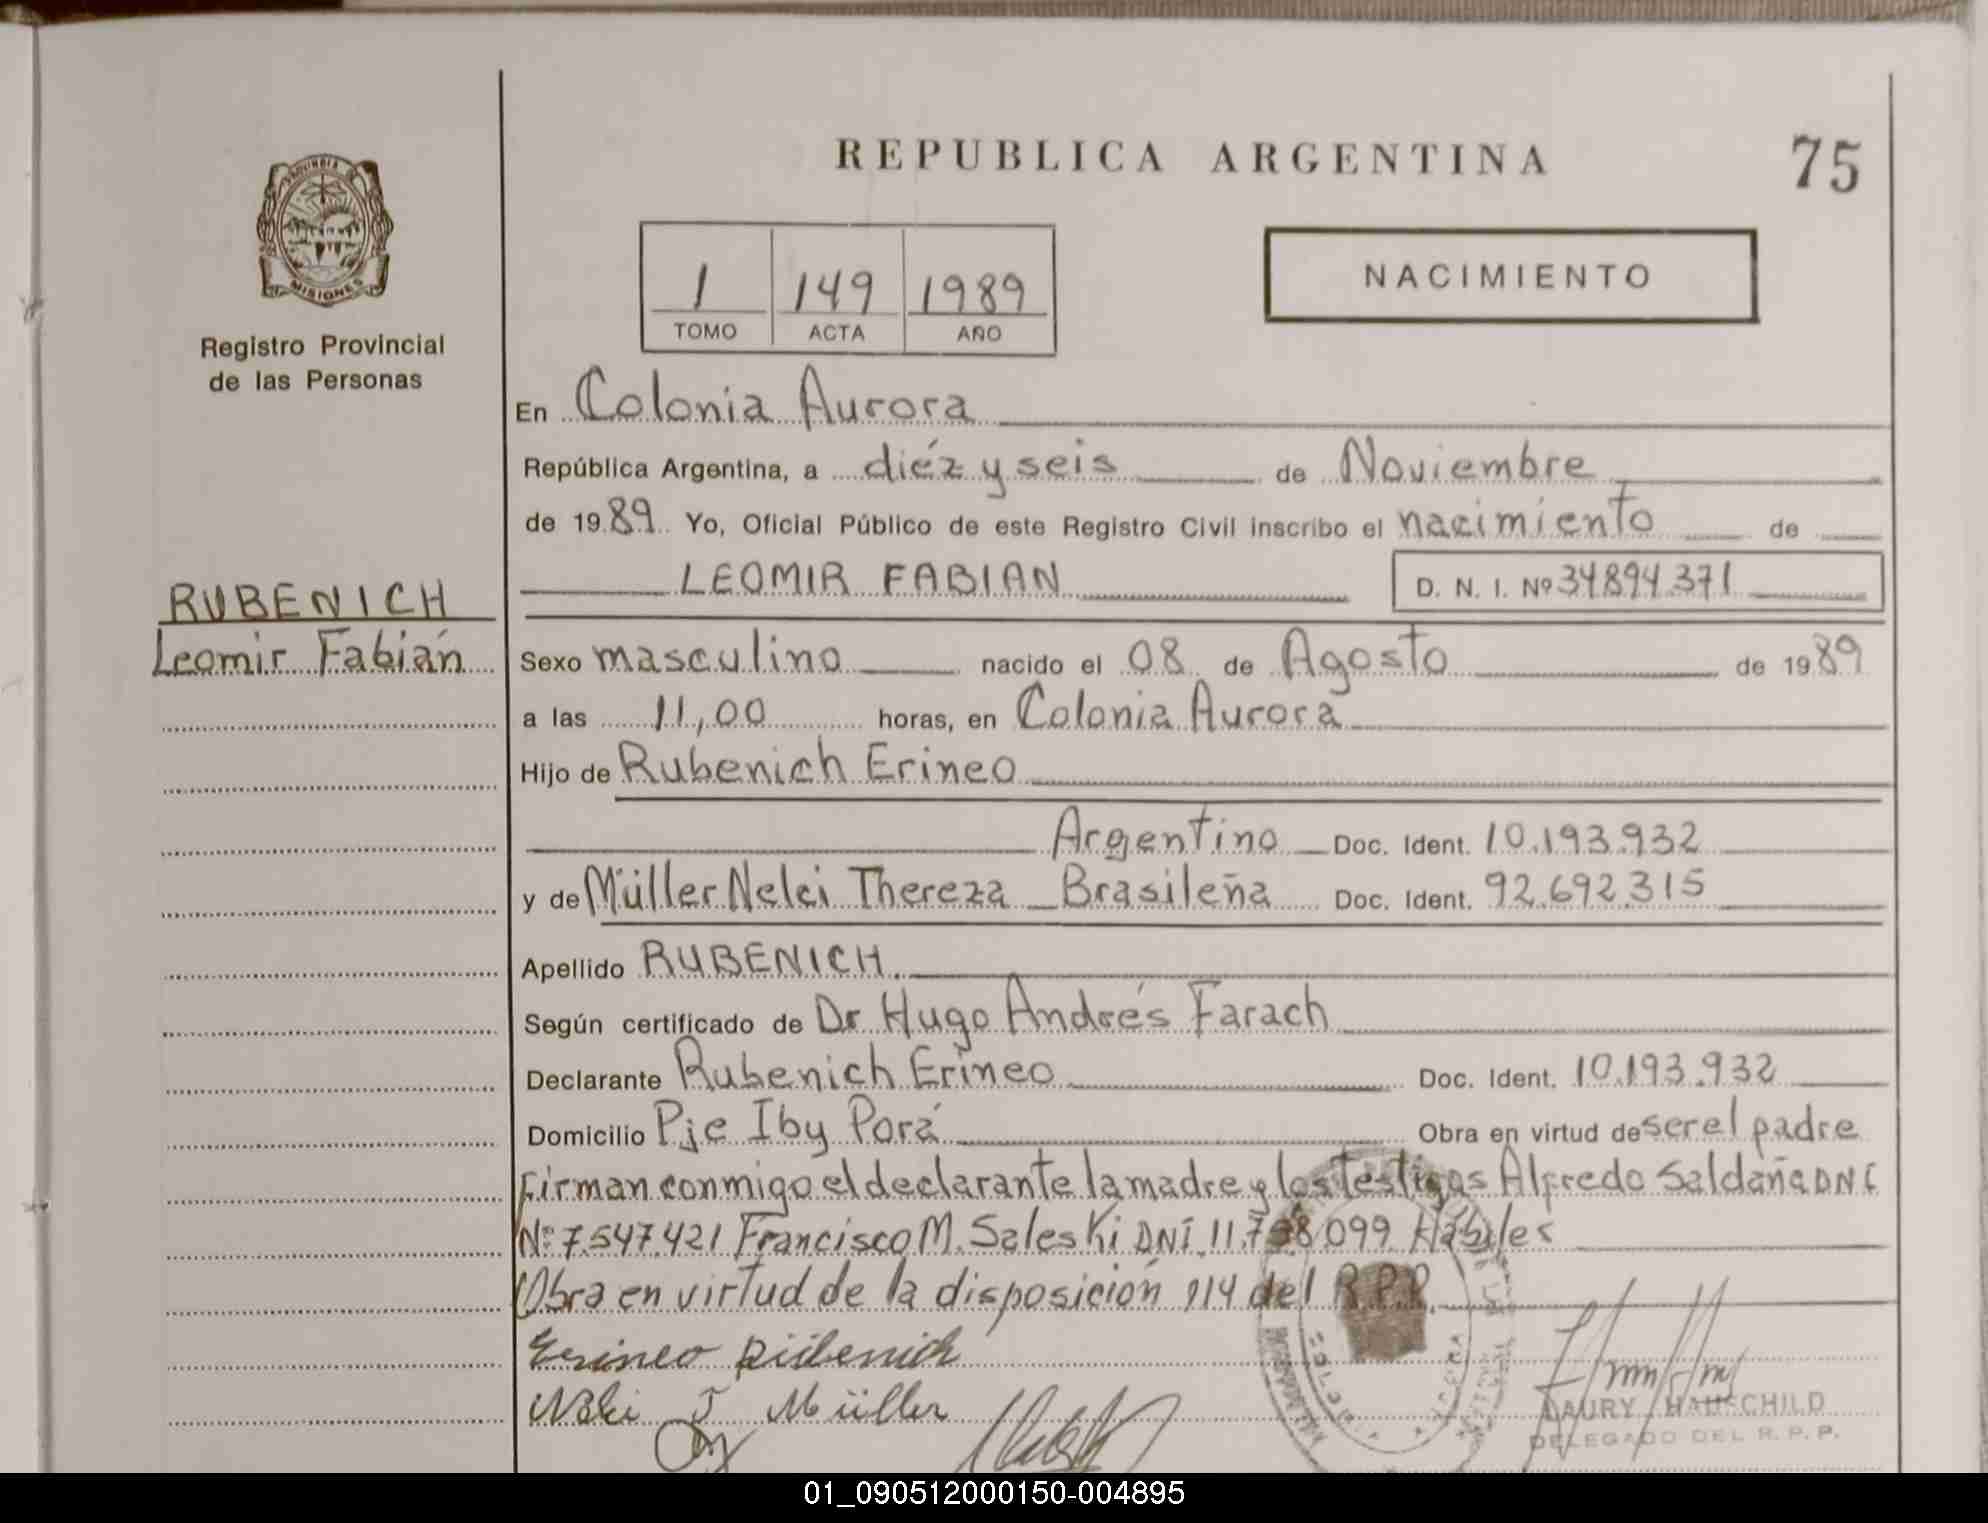 REPUBLICA ARGENTINA
75
PROVINCIA DE
MISIONES
Registro Provincial
de las Personas
1 149 1989
TOMO ACTA AÑO
NACIMIENTO
En Colonia Aurora
República Argentina, a diéz y seis de Noviembre
de 1989 Yo, Oficial Público de este Registro Civil inscribo el nacimiento de
LEOMIR FABIAN D. N. I. Nº 34894.371
RUBENICH
Leomir Fabián
Sexo masculino nacido el 08 de Agosto de 1989
a las 11,00 horas, en Colonia Aurora
Hijo de Rubenich Erineo
Argentino Doc. Ident. 10.193.932
y de Müller Nelci Thereza Brasileña Doc. Ident. 92.692.315
Apellido RUBENICH.
Según certificado de Dr Hugo Andrés Farach
Declarante Rubenich Erineo Doc. Ident. 10.193.932
Domicilio Pje Iby Porá Obra en virtud de ser el padre
Firman conmigo el declarante la madre y los testigos Alfredo Saldaña DNI
Nº 7.547.421 Francisco M. Saleski DNI. 11.798.099 Hábiles
Obra en virtud de la disposición 114 del R.P.P.
Erineo Rübenich
Nelci T Müller
LAURY HAUSCHILD
DELEGADO DEL R. P. P.
01_090512000150-004895